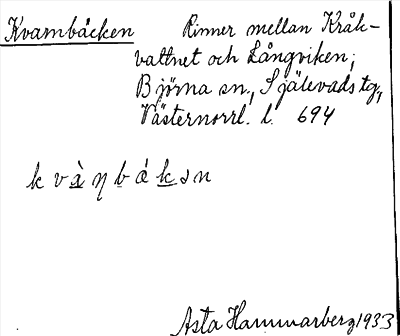 Kvarnbäcken Rinner mellan Kråk-
vattnet och Långviken;
Björna sn., Själevads tg,
Västernorrl. l. 694
k v à̱ ŋ b á ḵ ə n
Asta Hammarberg 1933